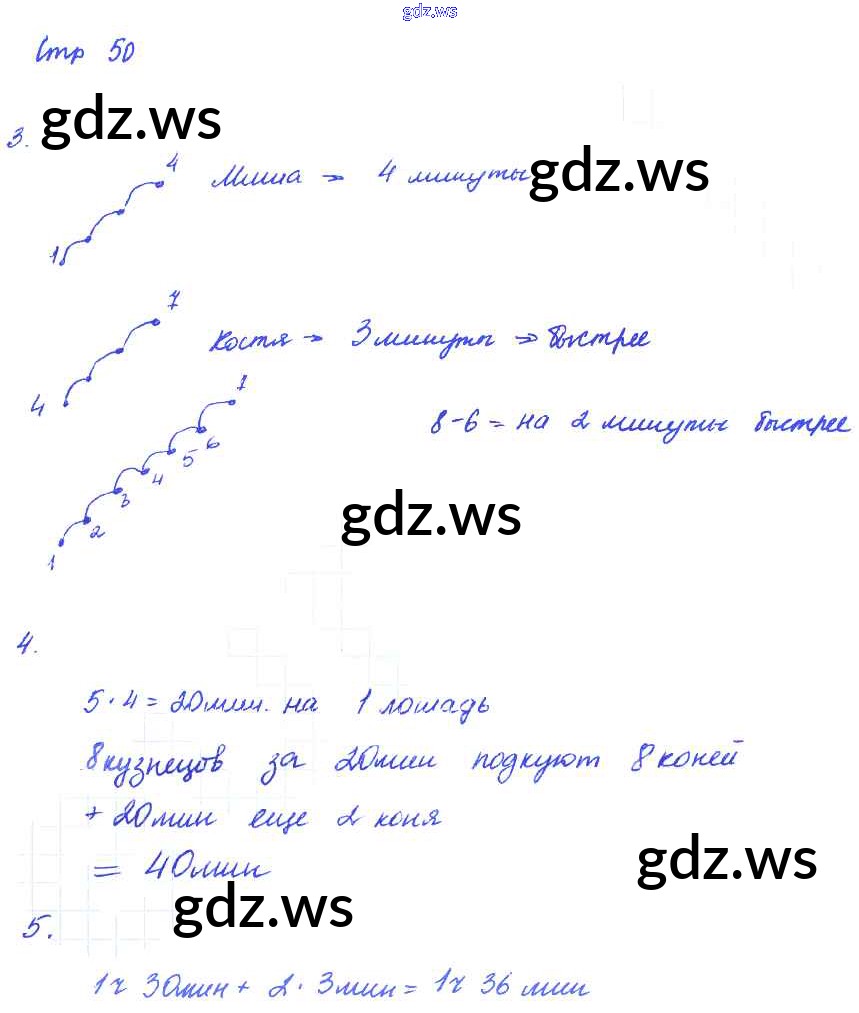 gdz.ws
Стр 50
gdz.ws
3.
4 Миша → 4 минуты gdz.ws
1
7
Костя → 3 минуты → быстрее
4
7
8-6 = на 2 минуты быстрее
6
5
4
3
gdz.ws
2
1
4.
5·4 = 20мин. на 1 лошадь
8кузнецов за 20мин подкуют 8 коней
+ 20мин еще 2 коня
= 40мин gdz.ws
gdz.ws
5.
1ч 30мин + 2·3мин = 1ч 36 мин